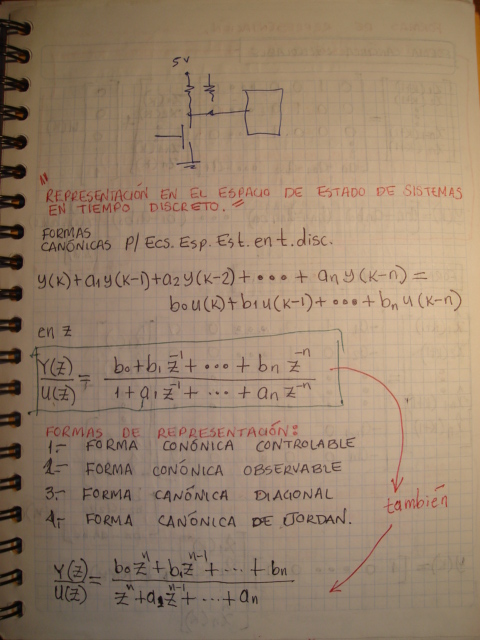 5V
"REPRESENTACIÓN EN EL ESPACIO DE ESTADO DE SISTEMAS
EN TIEMPO DISCRETO."
FORMAS
CANÓNICAS P/ ECS. ESP. Est. en t. disc.
y(k)+a1y(k-1)+a2y(k-2)+•••+any(k-n)=
b0u(k)+b1u(k-1)+•••+bnu(k-n)
en z
Y(z)/U(z) = (b0+b1z^-1+•••+bnz^-n)/(1+a1z^-1+•••+anz^-n)
FORMAS DE REPRESENTACIÓN:
1.- FORMA CONÓNICA CONTROLABLE
2.- FORMA CONÓNICA OBSERVABLE
3.- FORMA CANÓNICA DIAGONAL
4.- FORMA CANÓNICA DE JORDAN.
también
Y(z)/U(z) = (b0z^n+b1z^n-1+...+bn)/(z^n+a1z^n-1+...+an)